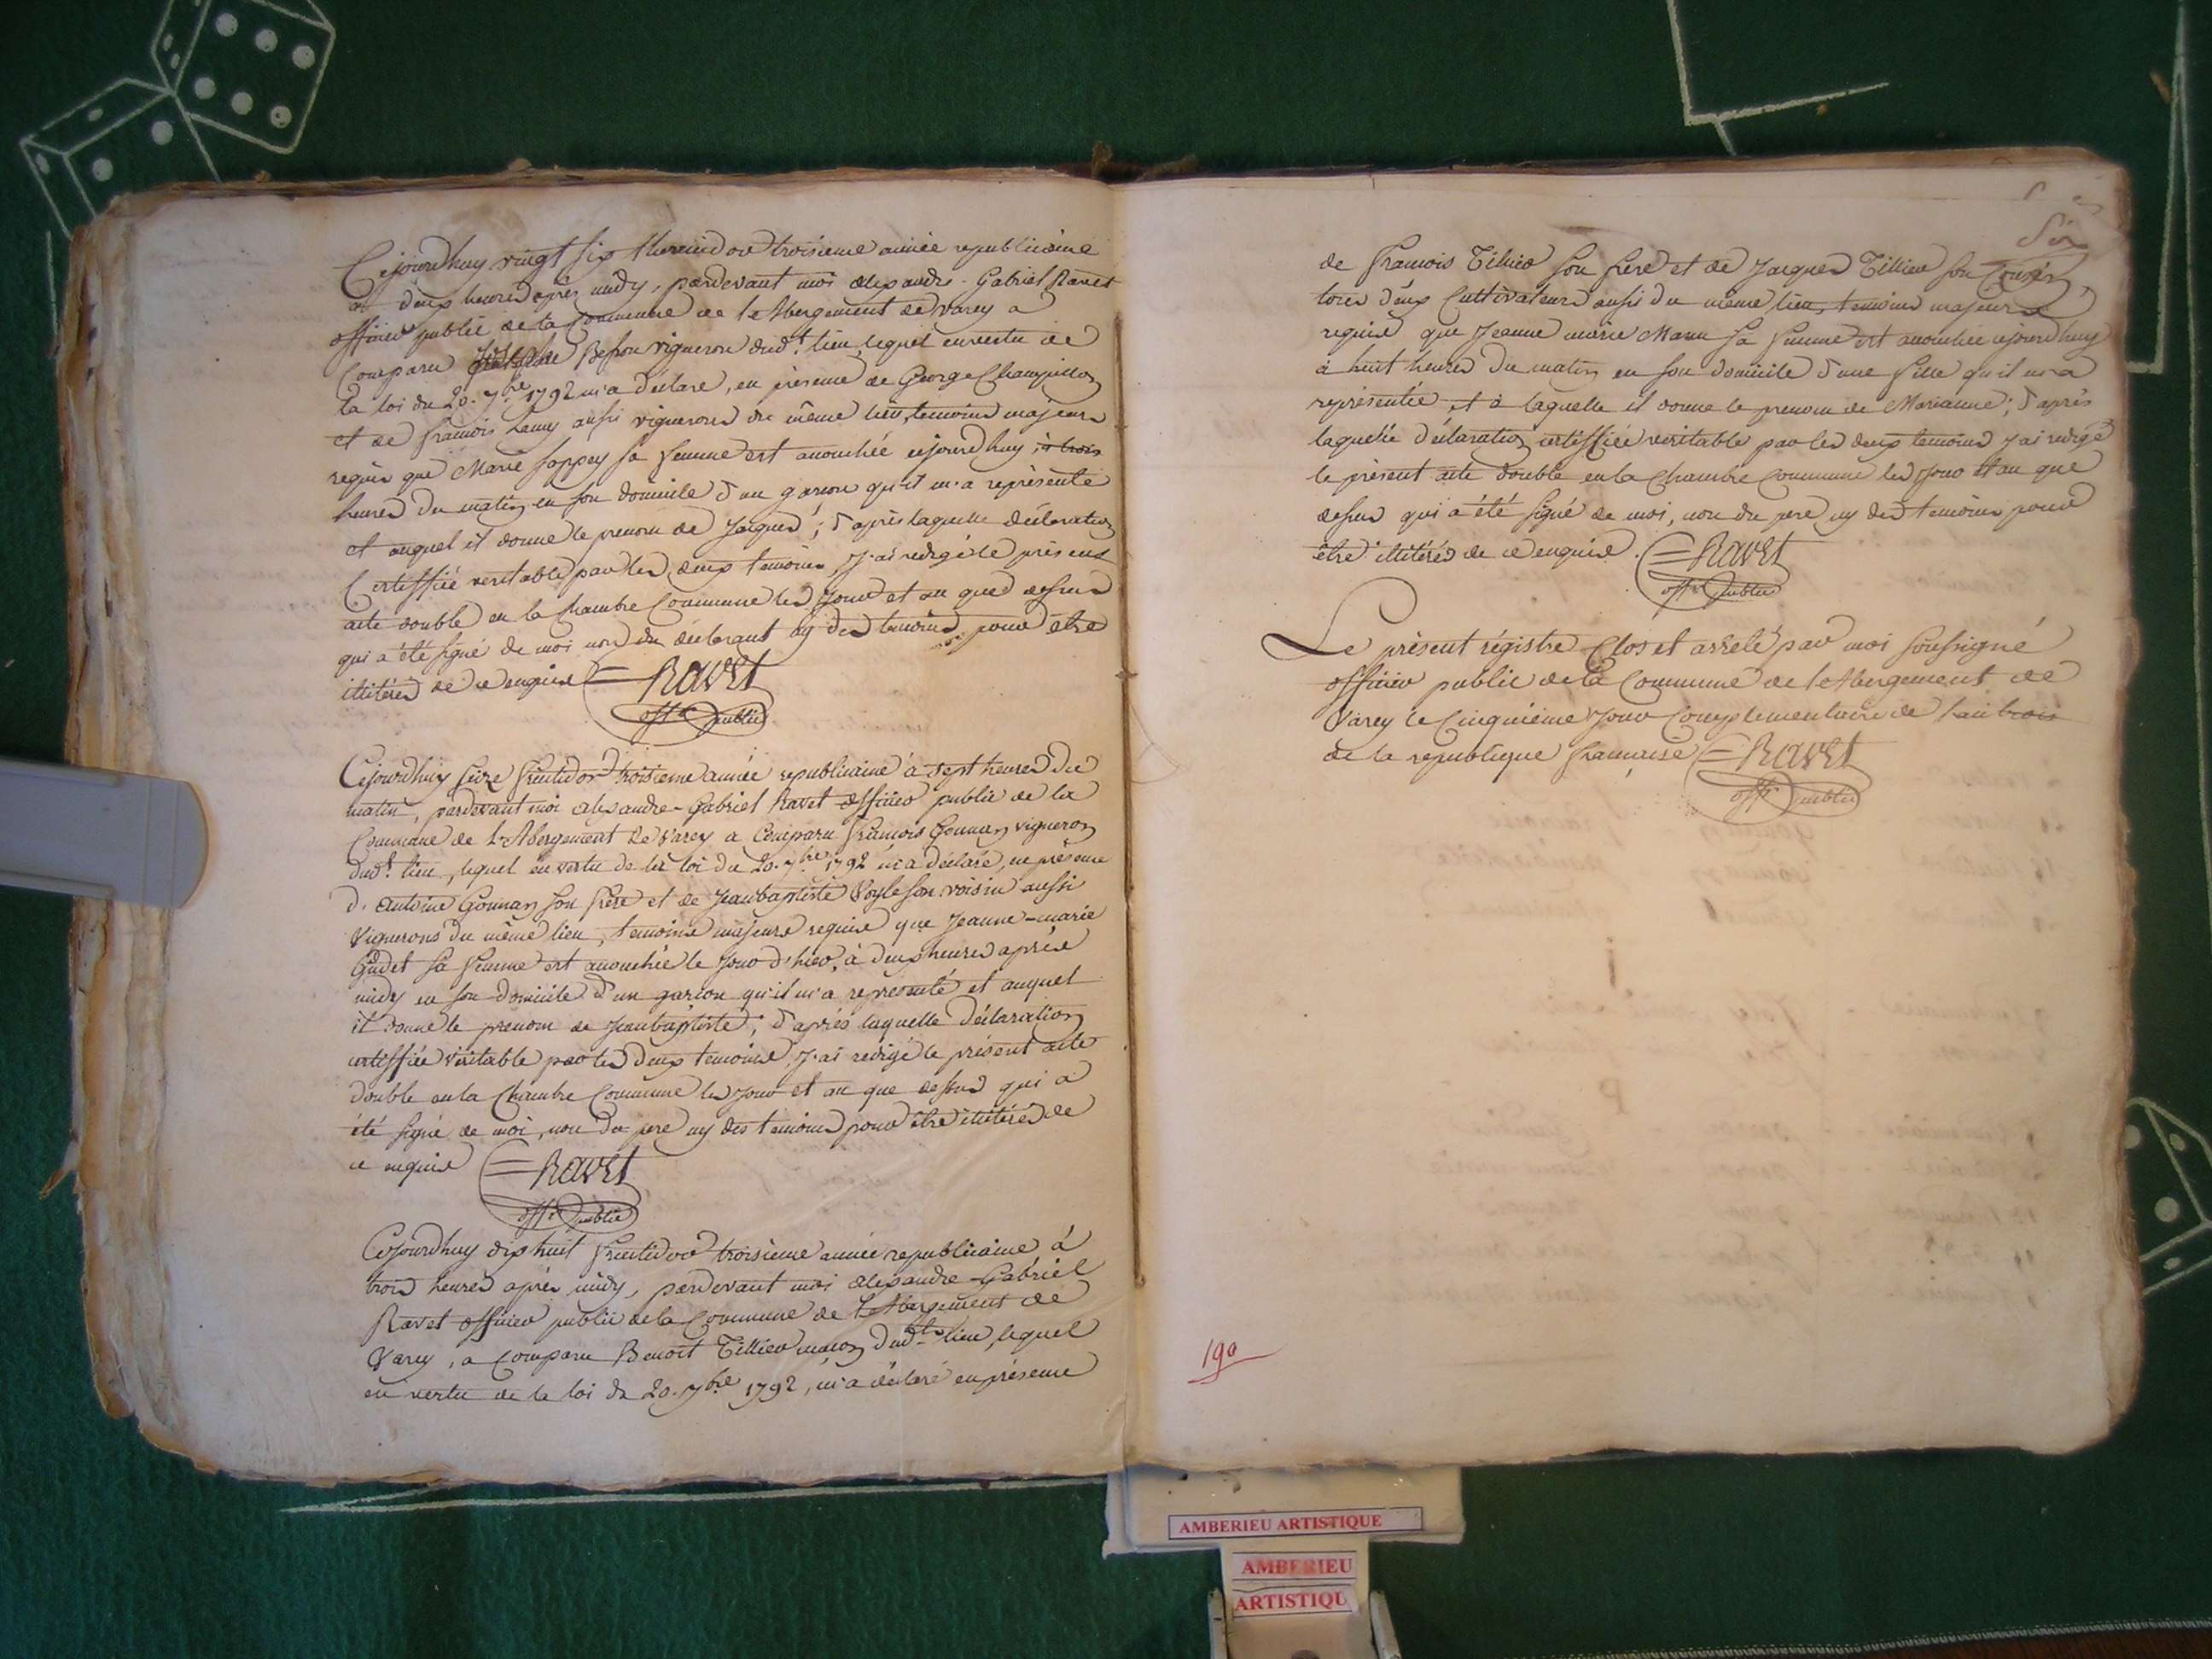 Cejourdhuy vingt six thermidor troisieme année republicaine
a deux heures après midy, pardevant moi alexandre-Gabriel Ravet
officier public de la Commune de l'Abergement de Varey a
Comparu vigneron dud.t lieu, lequel en vertu de
la loi du 20. 7.bre 1792 m'a déclaré, en présence de George Champillon
et de françois Lamy aussi vignerons du même lieu, temoins majeurs
requis que Marie sa femme est accouchée cejourdhuy à trois
heures du matin en son domicile d'un garcon qu'il m'a représenté
et auquel il donne le prenom de Jacques; d'après laquelle déclaration
Certiffiée veritable par les deux temoins, J'ai redigé le présent
acte double en la Chambre Commune les Jour et an que dessus
qui a été signé de moi non du déclarant ny des temoins pour être
illitérés de ce enquis = Ravet
off.er public
Cejourdhuy seize fructidor troisieme année republicaine à sept heures du
matin, pardevant moi alexandre-Gabriel Ravet officier public de la
Commune de L'Abergement de Varey a Comparu françois Gonnan vigneron
dud.t lieu, lequel en vertu de la loi du 20. 7.bre 1792 m'a déclaré, en présence
d'antoine Gonnan son frere et de Jeanbaptiste son voisin aussi
vignerons du même lieu, temoins majeurs requis que Jeanne-marie
Gudet sa femme est accouchée le jour d'hier, à deux heures après
midy en son domicile d'un garcon qu'il m'a representé et auquel
il donne le prenom de Jeanbaptiste; d'après laquelle déclaration
certiffiée véritable par les deux temoins, J'ai redigé le présent acte
double en la Chambre Commune les Jour et an que dessus qui a
été signé de moi, non du pere ny des temoins pour être illitérés de
ce enquis = Ravet
off.er public
Cejourdhuy dix huit fructidor troisieme année republicaine à
trois heures après midy, pardevant moi alexandre-Gabriel
Ravet officier public de la Commune de L'Abergement de
Varey, a Comparu Benoit Tillier macon dud.t lieu, lequel
en vertu de la loi du 20. 7.bre 1792, m'a déclaré en présence
Six
de françois Tillier son frere et de Jacques Tillier son Cousin,
tous deux Cultivateurs aussi du même lieu, temoins majeurs
requis que Jeanne marie sa femme est accouchée cejourdhuy
à huit heures du matin en son domicile d'une fille qu'il m'a
représentée et à laquelle il donne le prenom de Marianne; d'après
laquelle déclaration certiffiée veritable par les deux temoins J'ai redigé
le présent acte double en la Chambre Commune les Jour et an que
dessus qui a été signé de moi, non du pere ny des temoins pour
être illitérés de ce enquis. = Ravet
off.er public
Le présent régistre Clos et arrêté par moi soussigné
officier public de la Commune de l'Abergement de
Varey le Cinquième Jour Complementaire de l'an trois
de la republique française = Ravet
off.er public
190
AMBERIEU ARTISTIQUE
AMBERIEU
ARTISTIQU